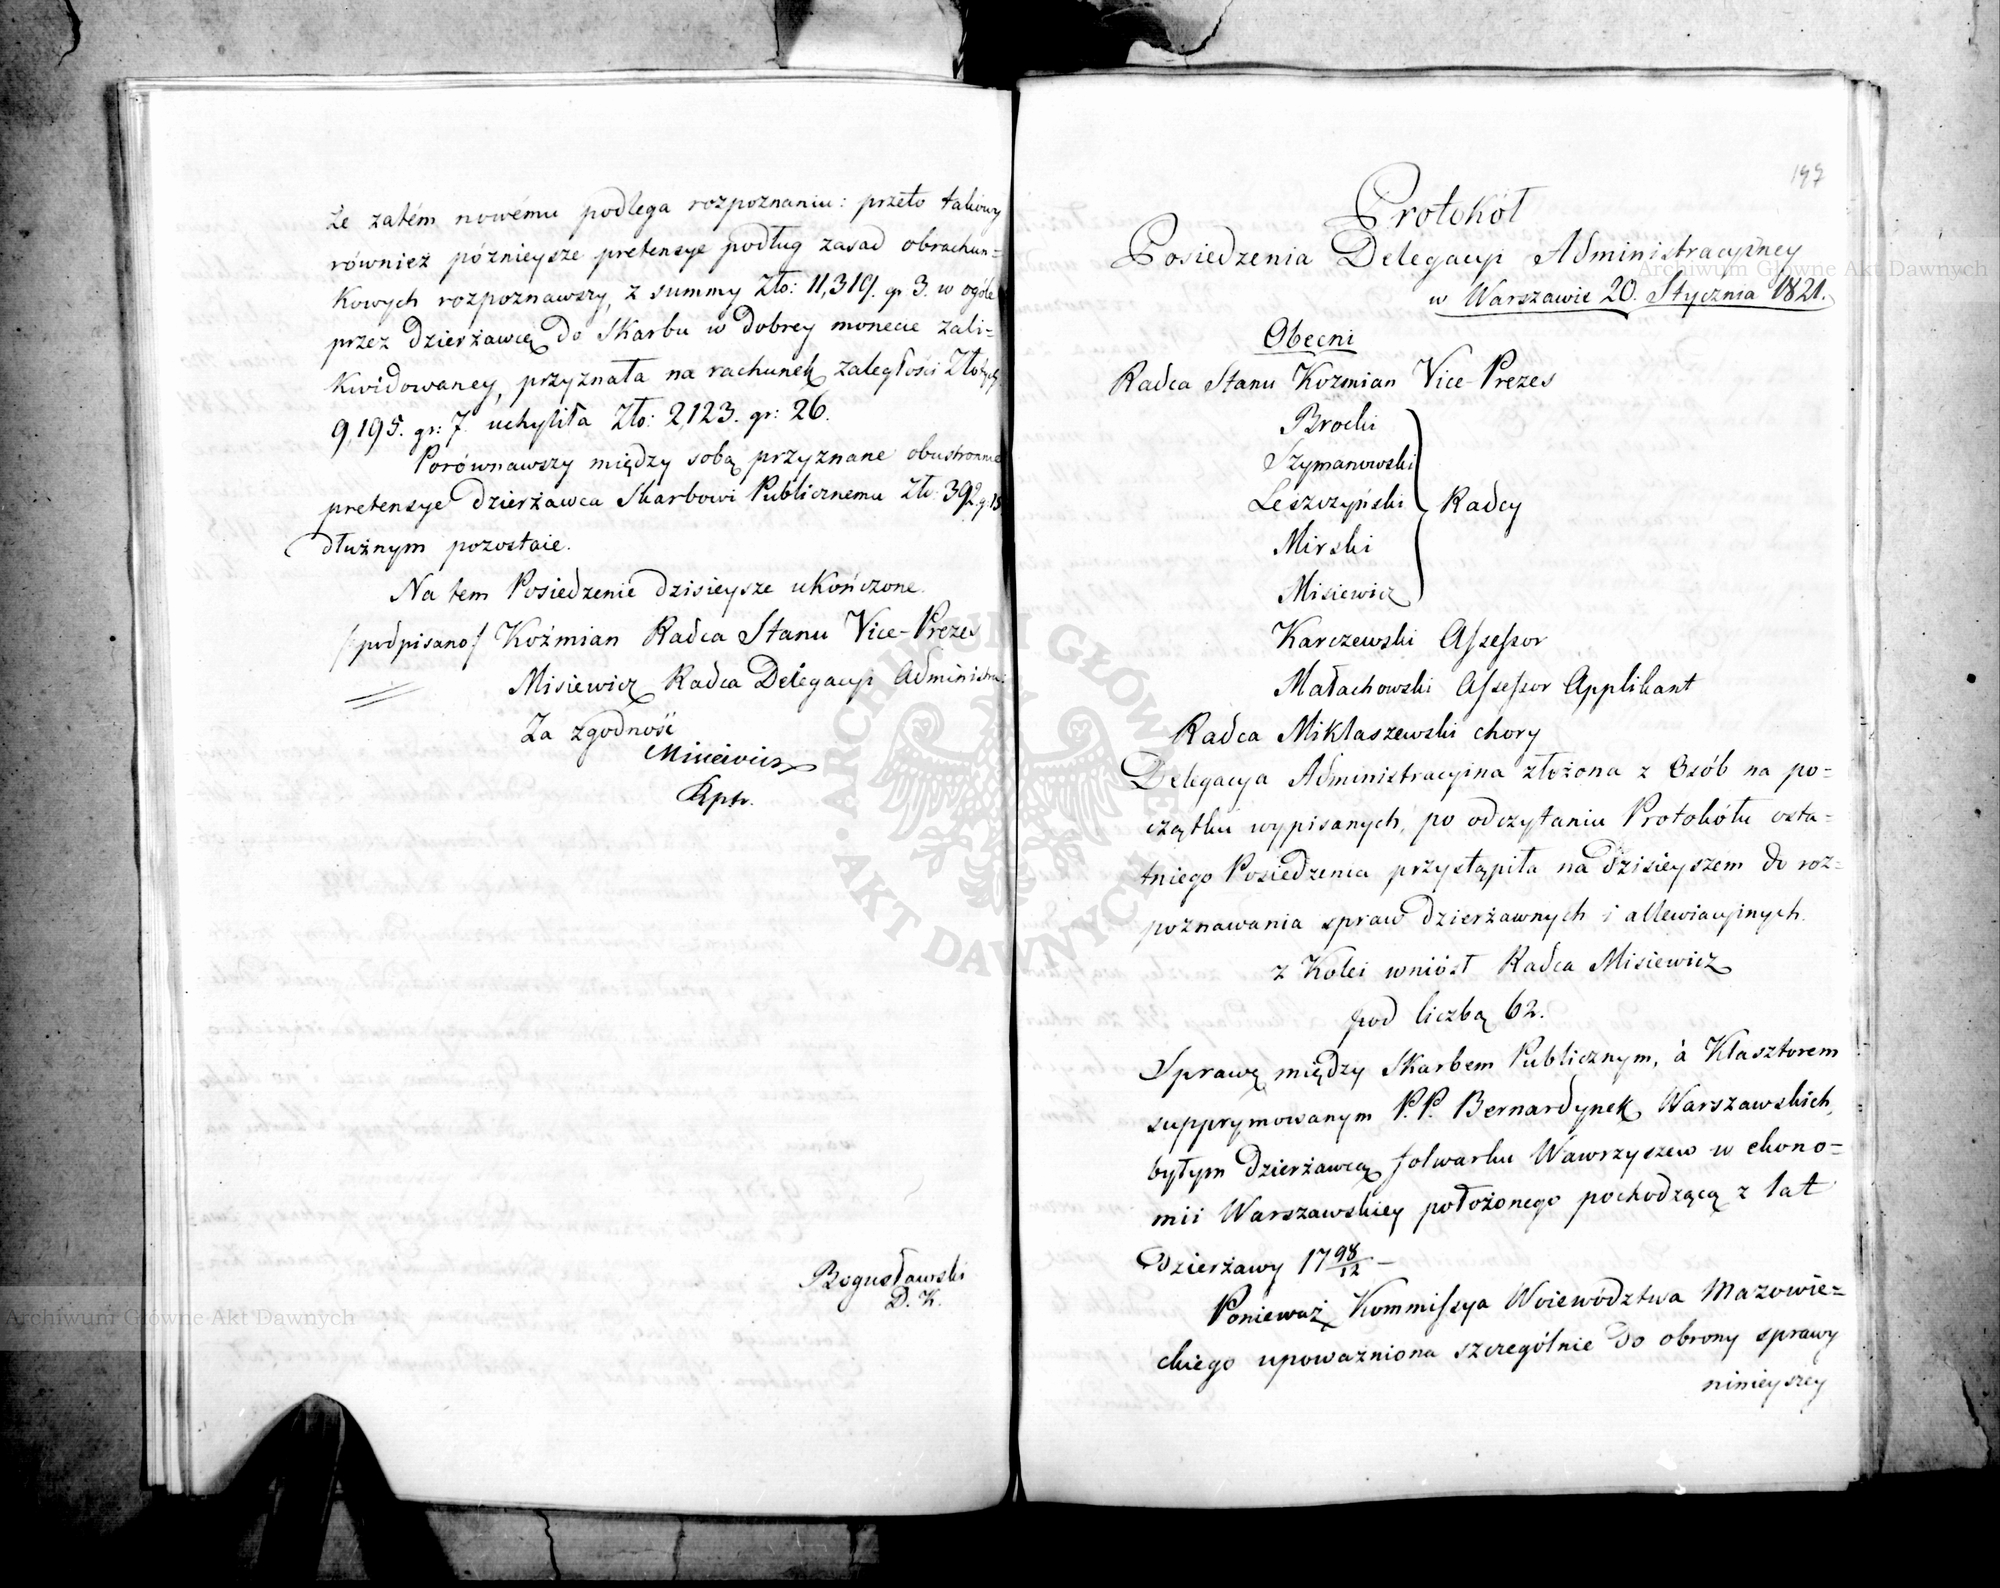 że zatém nowému podlega rozpoznaniu: przeto takowy
również późnieysze pretensye podług zasad obrachun=
kowych rozpoznawszy, z summy Zło: 11,319. gr 3. w ogóle
przez dzierżawcę do Skarbu w dobrey monecie zali=
kwidowaney, przyznała na rachunek zaległości Złotych
9,195. gr: 7. uchyliła Zło: 2,123. gr: 26.
Porównawszy między sobą przyznane obustronne
pretensye dzierżawca Skarbowi Publicznemu Zło: 392 g. 18
dłużnym pozostaie.
Na tem Posiedzenie dzisieysze ukończone.
/podpisano/ Koźmian Radca Stanu Vice-Prezes
Misiewicz Radca Delegacyi Administra:
Za zgodność
Misiewicz
Bogusławski
D. K.
197
Protokół
Posiedzenia Delegacyi Administracyiney
w Warszawie 20. Stycznia 1821.
Obecni
Radca Stanu Koźmian Vice-Prezes
Brocki
Szymanowski
Leszczyński Radcy
Mirski
Misiewicz
Karczewski Assessor
Małachowski Assessor Applikant
Radca Miklaszewski chory
Delegacya Administracyina złożona z Osób na po=
czątku wypisanych, po odczytaniu Protokółu osta=
tniego Posiedzenia przystąpiła na dzisieyszem do roz=
poznawania spraw dzierżawnych i allewiacyinych.
z Kolei wniósł Radca Misiewicz
pod liczbą 62.
Sprawę między Skarbem Publicznym, à Klasztorem
supprymowanym P.P. Bernardynek Warszawskich,
byłym dzierżawcą folwarku Wawrzyszew w ekono=
mii Warszawskiey położonego pochodzącą z lat
dzierżawy 1798/12 –
Ponieważ Kommissya Woiewództwa Mazowie=
ckiego upoważniona szczególnie do obrony sprawy
ninieyszey
Archiwum Główne Akt Dawnych
Archiwum Główne Akt Dawnych
ARCHIWUM GŁÓWNE AKT DAWNYCH